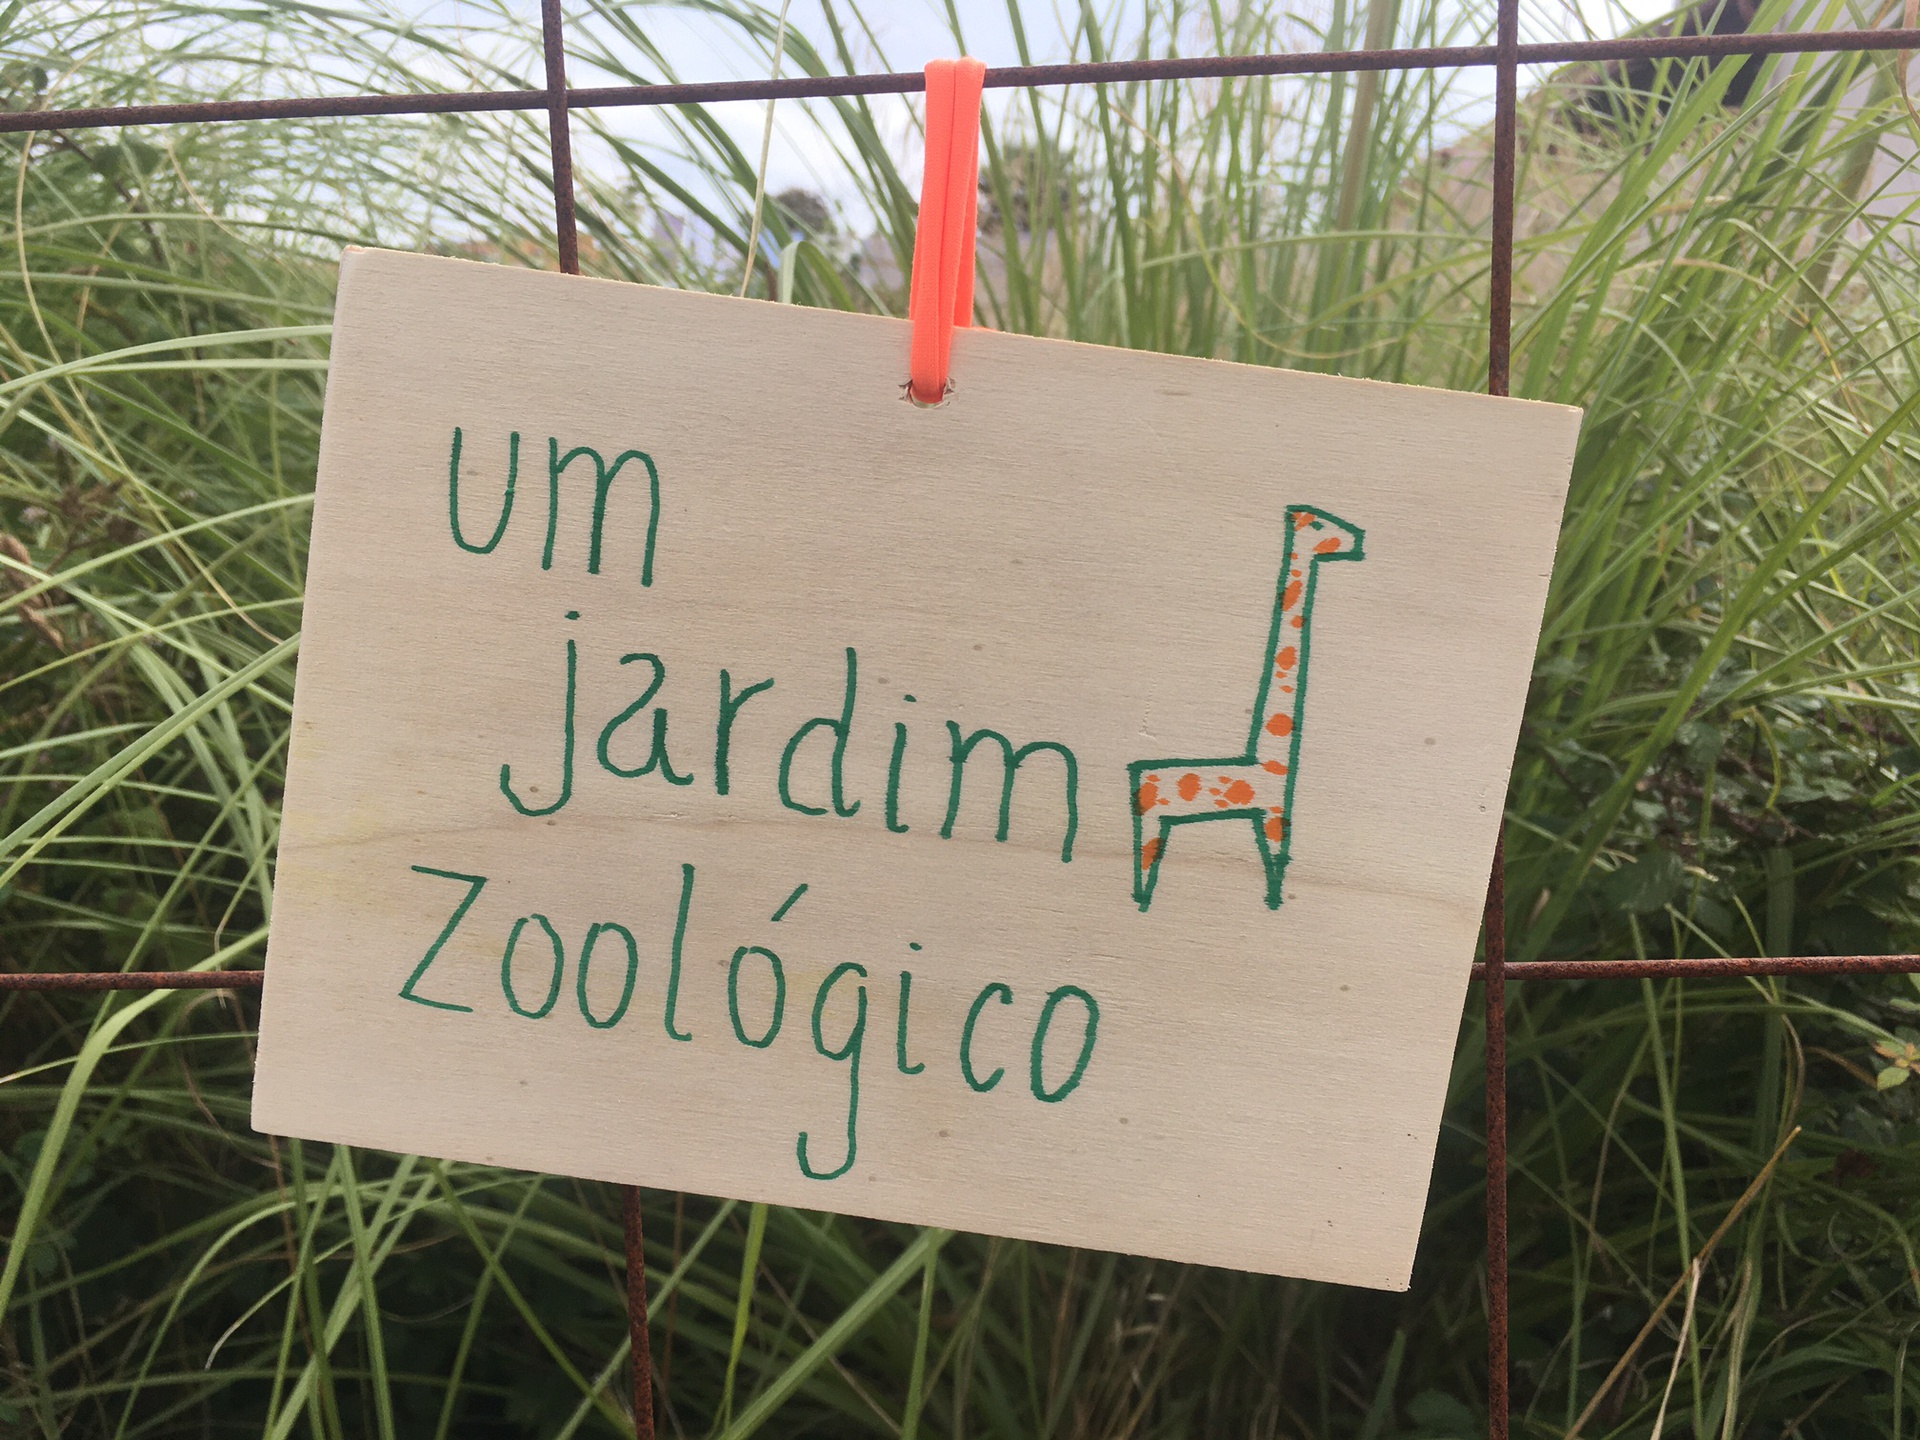 um
jardim
Zoológico